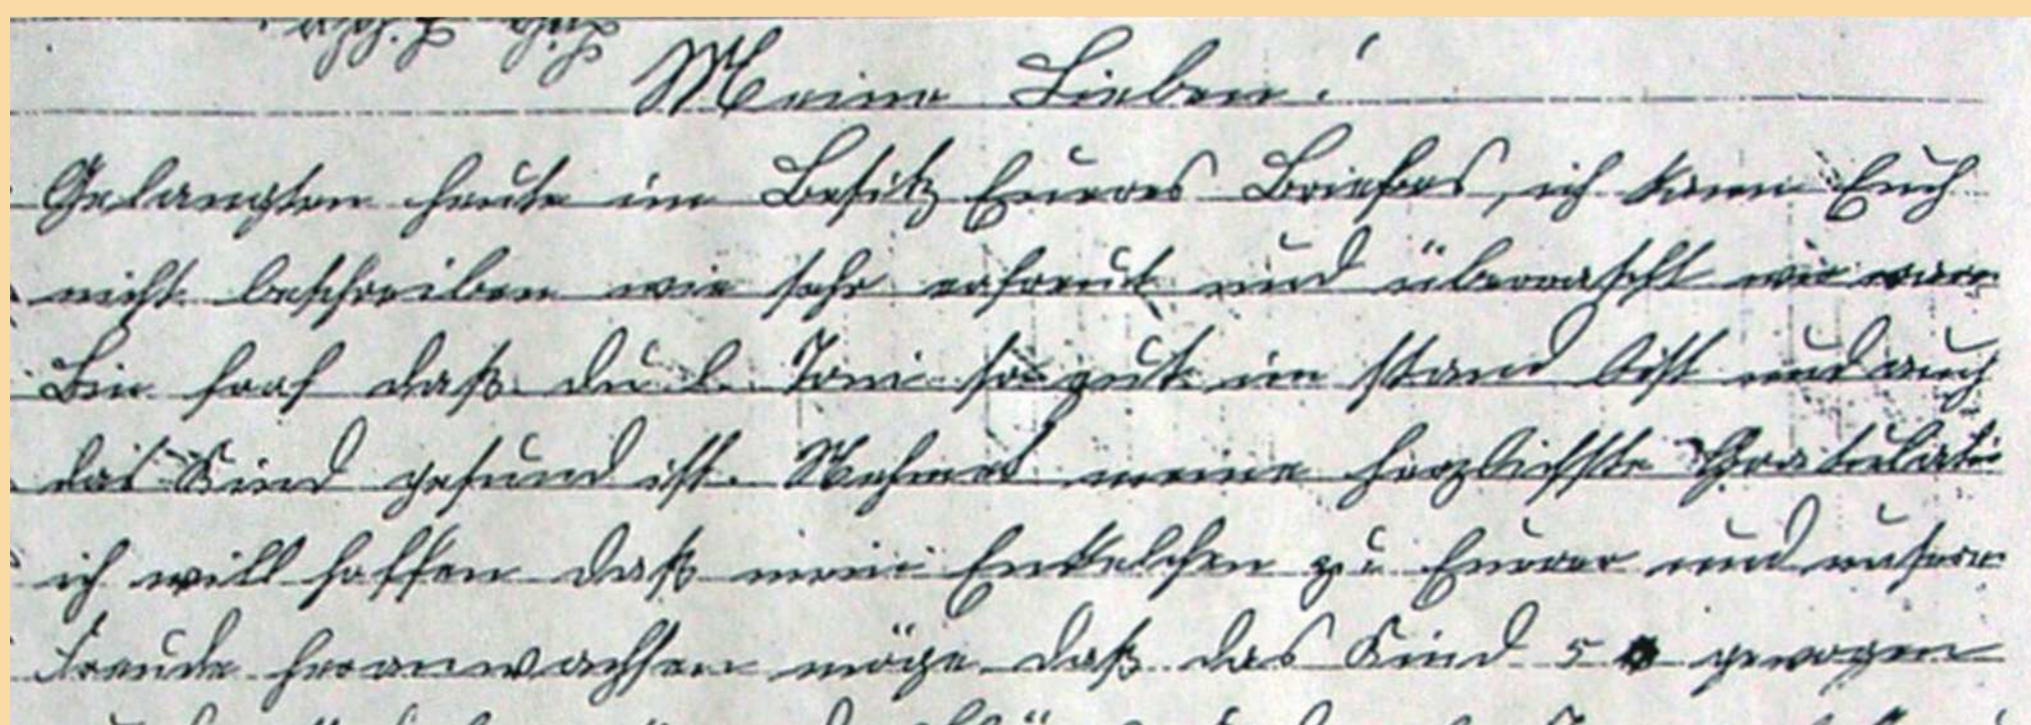 Meine Lieben!
Gelangten heute im Besitz Eueres Briefes, ich kann Euch
nicht beschreiben wie sehr erfreut und überrascht wir waren
Bin froh daß du l. Toni so gut im stand bist und auch
das Kind gesund ist. Nehmet meine herzlichste Gratulatio
ich will hoffen daß mein Enkelchen zu Euerer und unserer
Freude heranwachsen möge daß das Kind 5 gewogen